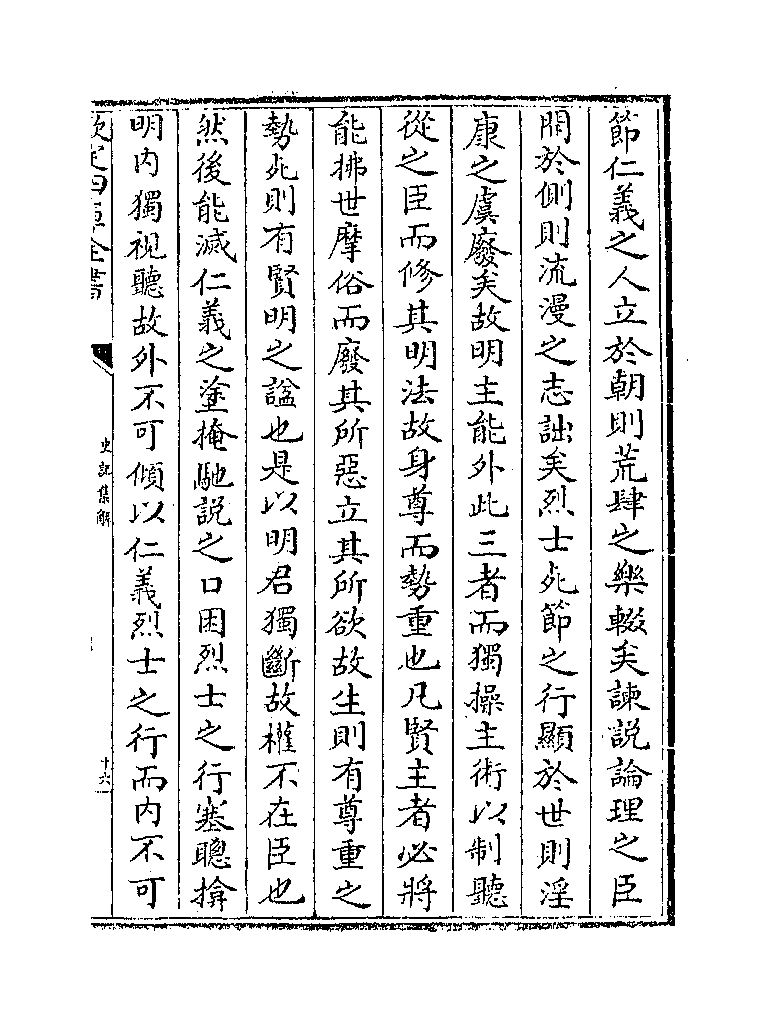 節仁義之人立於朝則荒肆之樂輟矣諫説論理之臣
閒於側則流漫之志詘矣烈士死節之行顯於世則淫
康之虞廢矣故明主能外此三者而獨操主術以制聽
從之臣而修其明法故身尊而勢重也凡賢主者必將
能拂世摩俗而廢其所惡立其所欲故生則有尊重之
勢死則有賢明之諡也是以明君獨斷故權不在臣也
然後能滅仁義之塗掩馳説之口困烈士之行塞聰揜
明内獨視聽故外不可傾以仁義烈士之行而内不可
欽定四庫全書
史記集解
十六